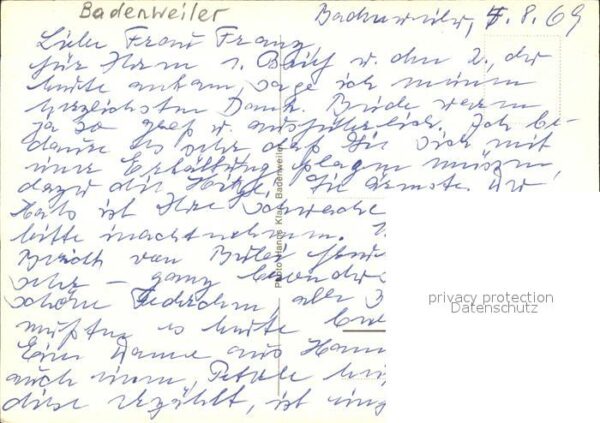 Badenweiler
Badenweiler, 7.8.69
Liebe Frau Franz
für Ihren 1. Brief u. den 2., der
heute ankam, sage ich meinen
herzlichsten Dank. Beide waren
ja so groß u. ausführlich. Ich be-
daure es sehr daß Sie sich mit
einer Erkältung plagen müssen,
dazu die Hitze. Sie Ärmste. Der
Hals ist Ihre schwache
bitte inachtnehmen.
Bericht von
sehr – ganz besonders
schöne alle 3
mußten es heute
Eine Dame aus Hann
auch einen,
diese erzählt, ist
Photo Hanns Klaus Badenweiler
privacy protection
Datenschutz